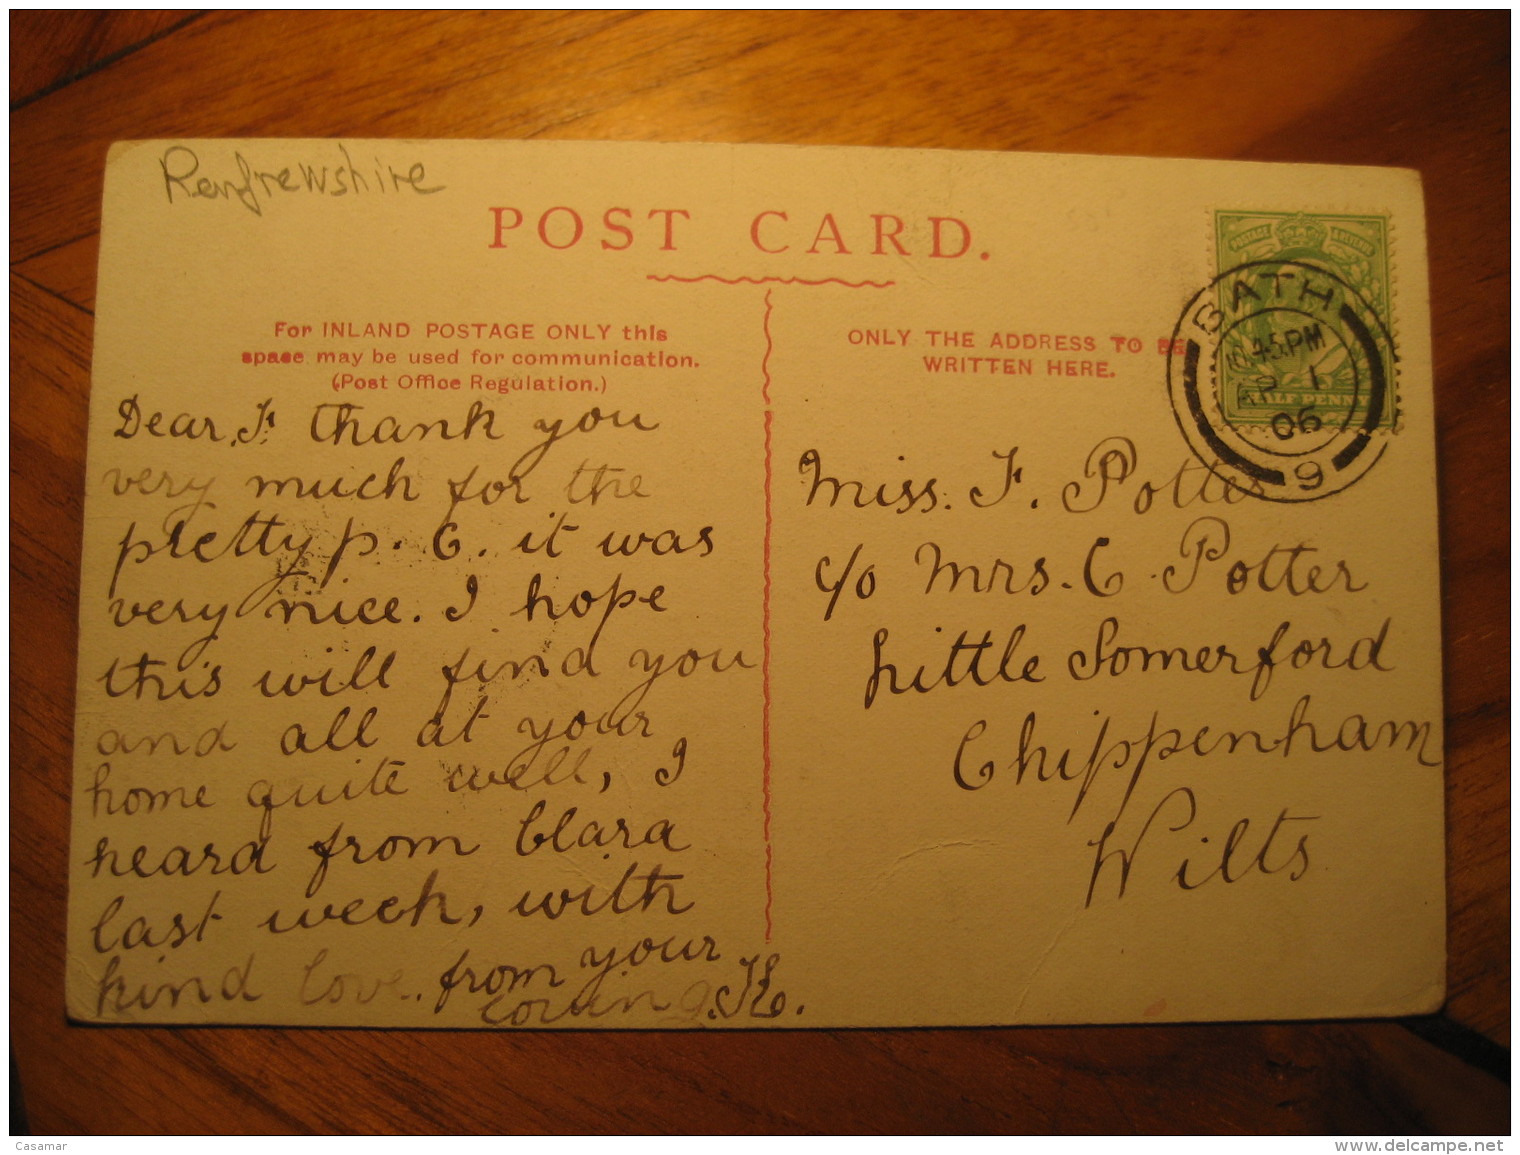 Renfrewshire
POST CARD.
For INLAND POSTAGE ONLY this
space may be used for communication.
(Post Office Regulation.)
ONLY THE ADDRESS TO BE
WRITTEN HERE.
POSTAGE & REVENUE
HALF PENNY
BATH
10.45PM
AP 1
06
9
Dear F. thank you
very much for the
pretty p. C. it was
very nice. I hope
this will find you
and all at your
home quite well, I
heard from Clara
last week, with
kind love. from your
K.
Miss. F. Potter
c/o Mrs. C. Potter
Little Somerford
Chippenham
Wilts
Casamar
delcampe.net